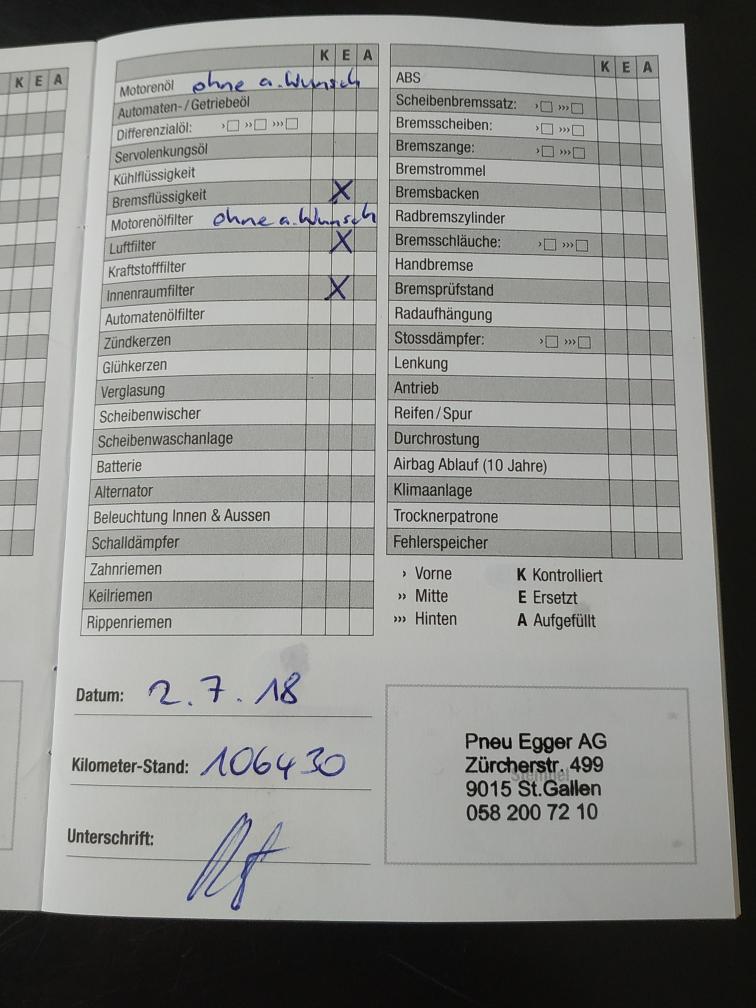 K E A
K E A
Motorenöl ohne a. Wunsch
Automaten-/Getriebeöl
Differenzialöl: › ☐ ›› ☐ ››› ☐
Servolenkungsöl
Kühlflüssigkeit
Bremsflüssigkeit X
Motorenölfilter ohne a. Wunsch
Luftfilter X
Kraftstofffilter
Innenraumfilter X
Automatenölfilter
Zündkerzen
Glühkerzen
Verglasung
Scheibenwischer
Scheibenwaschanlage
Batterie
Alternator
Beleuchtung Innen & Aussen
Schalldämpfer
Zahnriemen
Keilriemen
Rippenriemen
K E A
ABS
Scheibenbremssatz: › ☐ ››› ☐
Bremsscheiben: › ☐ ››› ☐
Bremszange: › ☐ ››› ☐
Bremstrommel
Bremsbacken
Radbremszylinder
Bremsschläuche: › ☐ ››› ☐
Handbremse
Bremsprüfstand
Radaufhängung
Stossdämpfer: › ☐ ››› ☐
Lenkung
Antrieb
Reifen / Spur
Durchrostung
Airbag Ablauf (10 Jahre)
Klimaanlage
Trocknerpatrone
Fehlerspeicher
› Vorne K Kontrolliert
›› Mitte E Ersetzt
››› Hinten A Aufgefüllt
Datum: 2.7.18
Kilometer-Stand: 106430
Unterschrift:
Pneu Egger AG
Zürcherstr. 499
Stempel
9015 St.Gallen
058 200 72 10